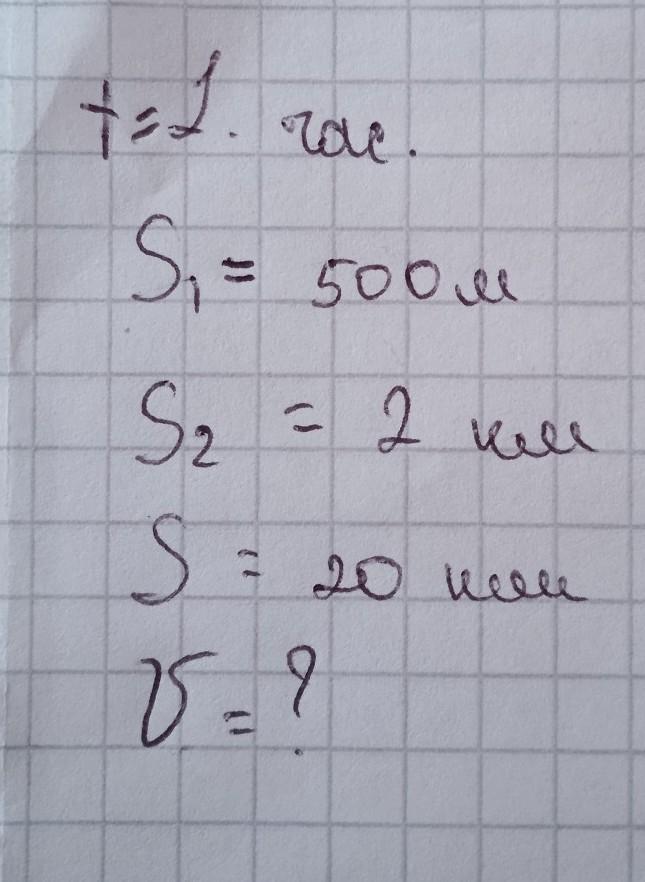 t=1. час.
S₁ = 500 м
S₂ = 2 км
S = 20 км
V = ?